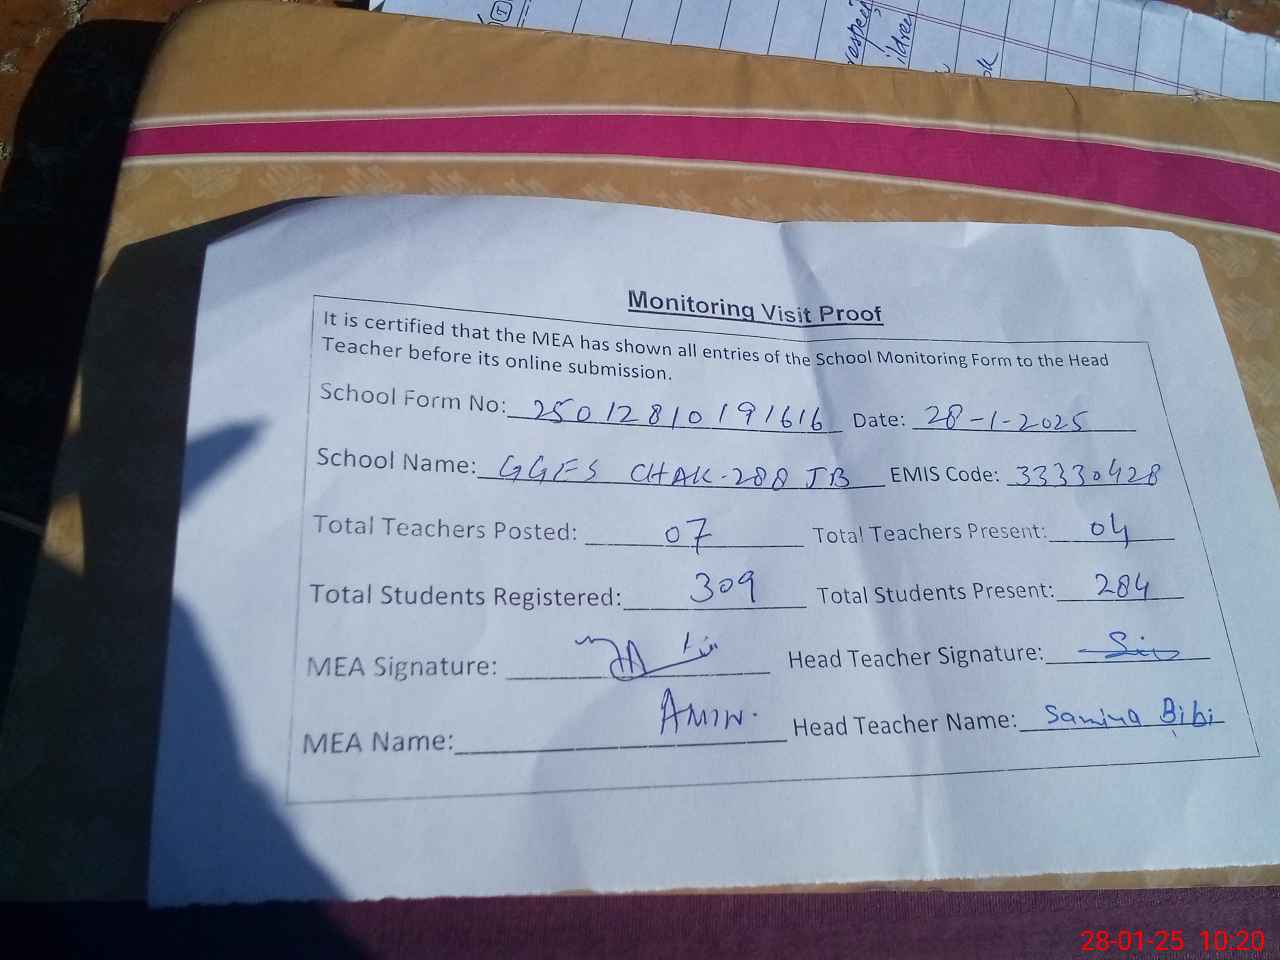 respect
Monitoring Visit Proof
It is certified that the MEA has shown all entries of the School Monitoring Form to the Head
Teacher before its online submission.
School Form No: 25012810191616 Date: 28-1-2025
School Name: GGES CHAK-288 JB EMIS Code: 33330428
Total Teachers Posted: 07 Total Teachers Present: 04
Total Students Registered: 309 Total Students Present: 284
MEA Signature: Head Teacher Signature:
MEA Name: Amin. Head Teacher Name: Samina Bibi
28-01-25 10:20